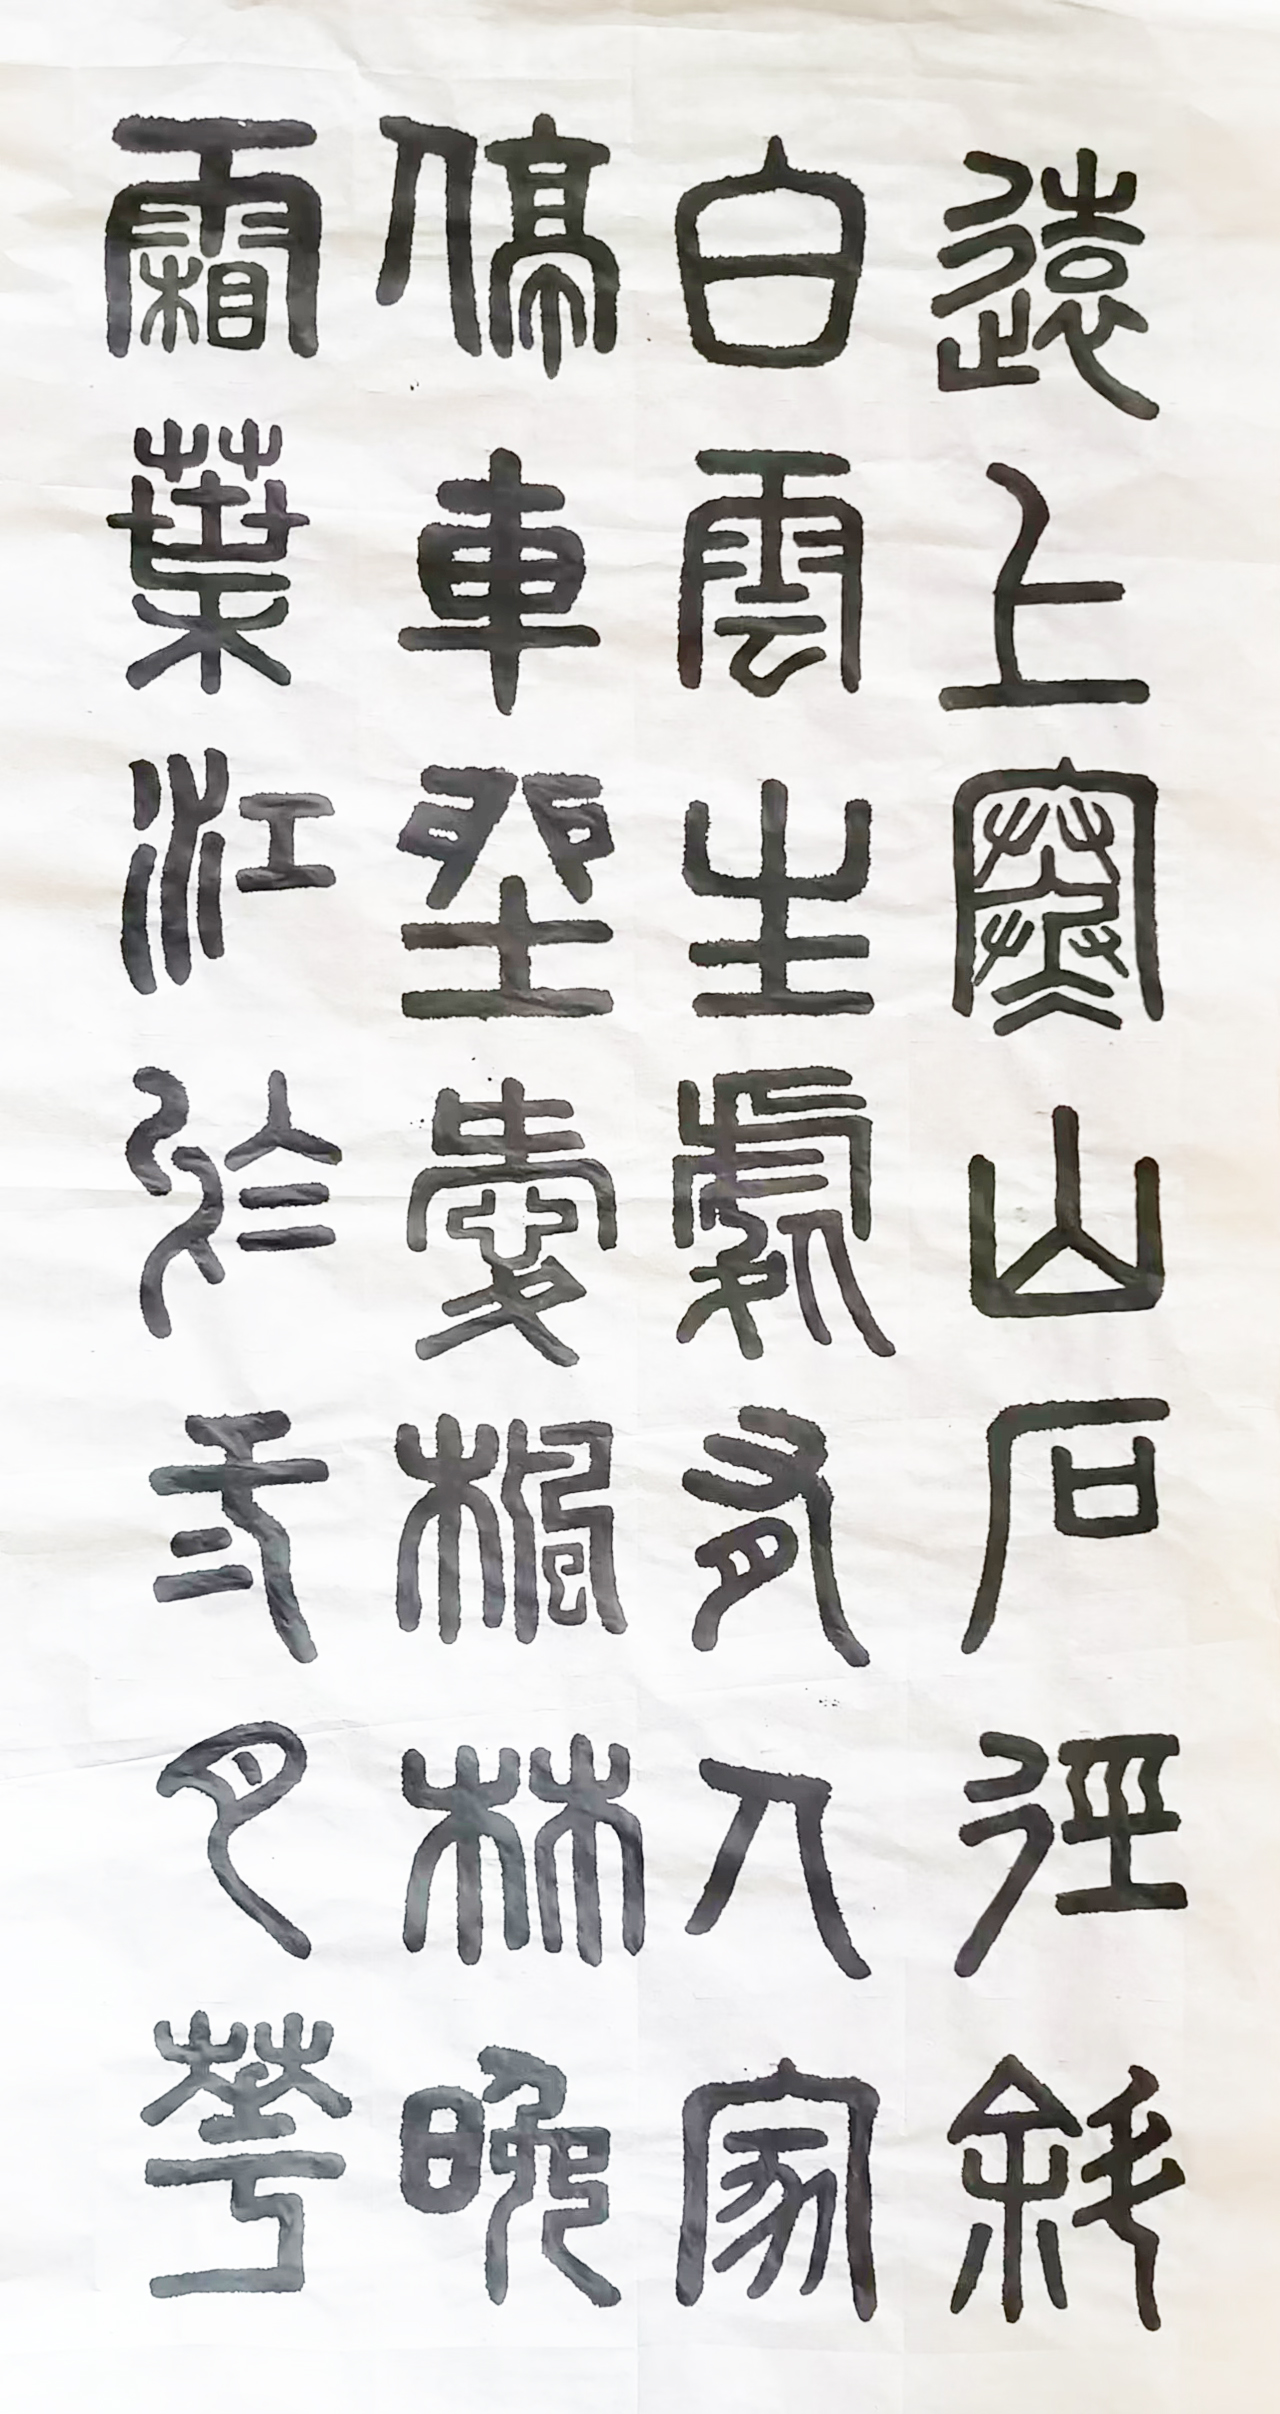 遠上寒山石徑斜
白雲生處有人家
停車坐愛楓林晚
霜葉江於弍月華